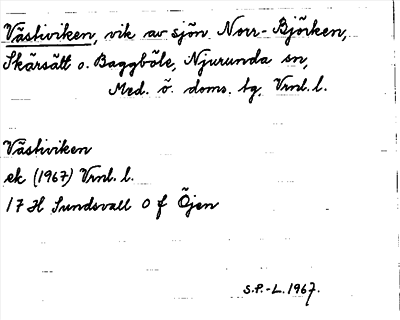 Västiviken, vik av sjön Norr-Björken,
Skärsätt o. Baggböle, Njurunda sn,
Med. ö. doms. tg. Vrnl. l.
Västiviken
ek (1967) Vrnl. l.
17 H Sundsvall 0 f Öjen
S.P.-L. 1967.